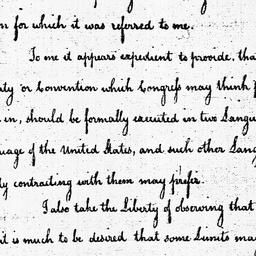 n for which it was referred to me.
To me it appears expedient to provide, tha
ty or Convention which Congress may think
in, should be formally executed in two Langu
uage of the United States, and such other Lang
ly contracting with them may prefer.
I also take the Liberty of observing that
it is much to be desired that some Limits ma